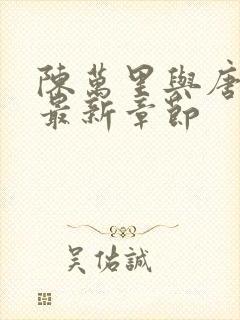 陳萬里與唐
最新章節
吴佑誠